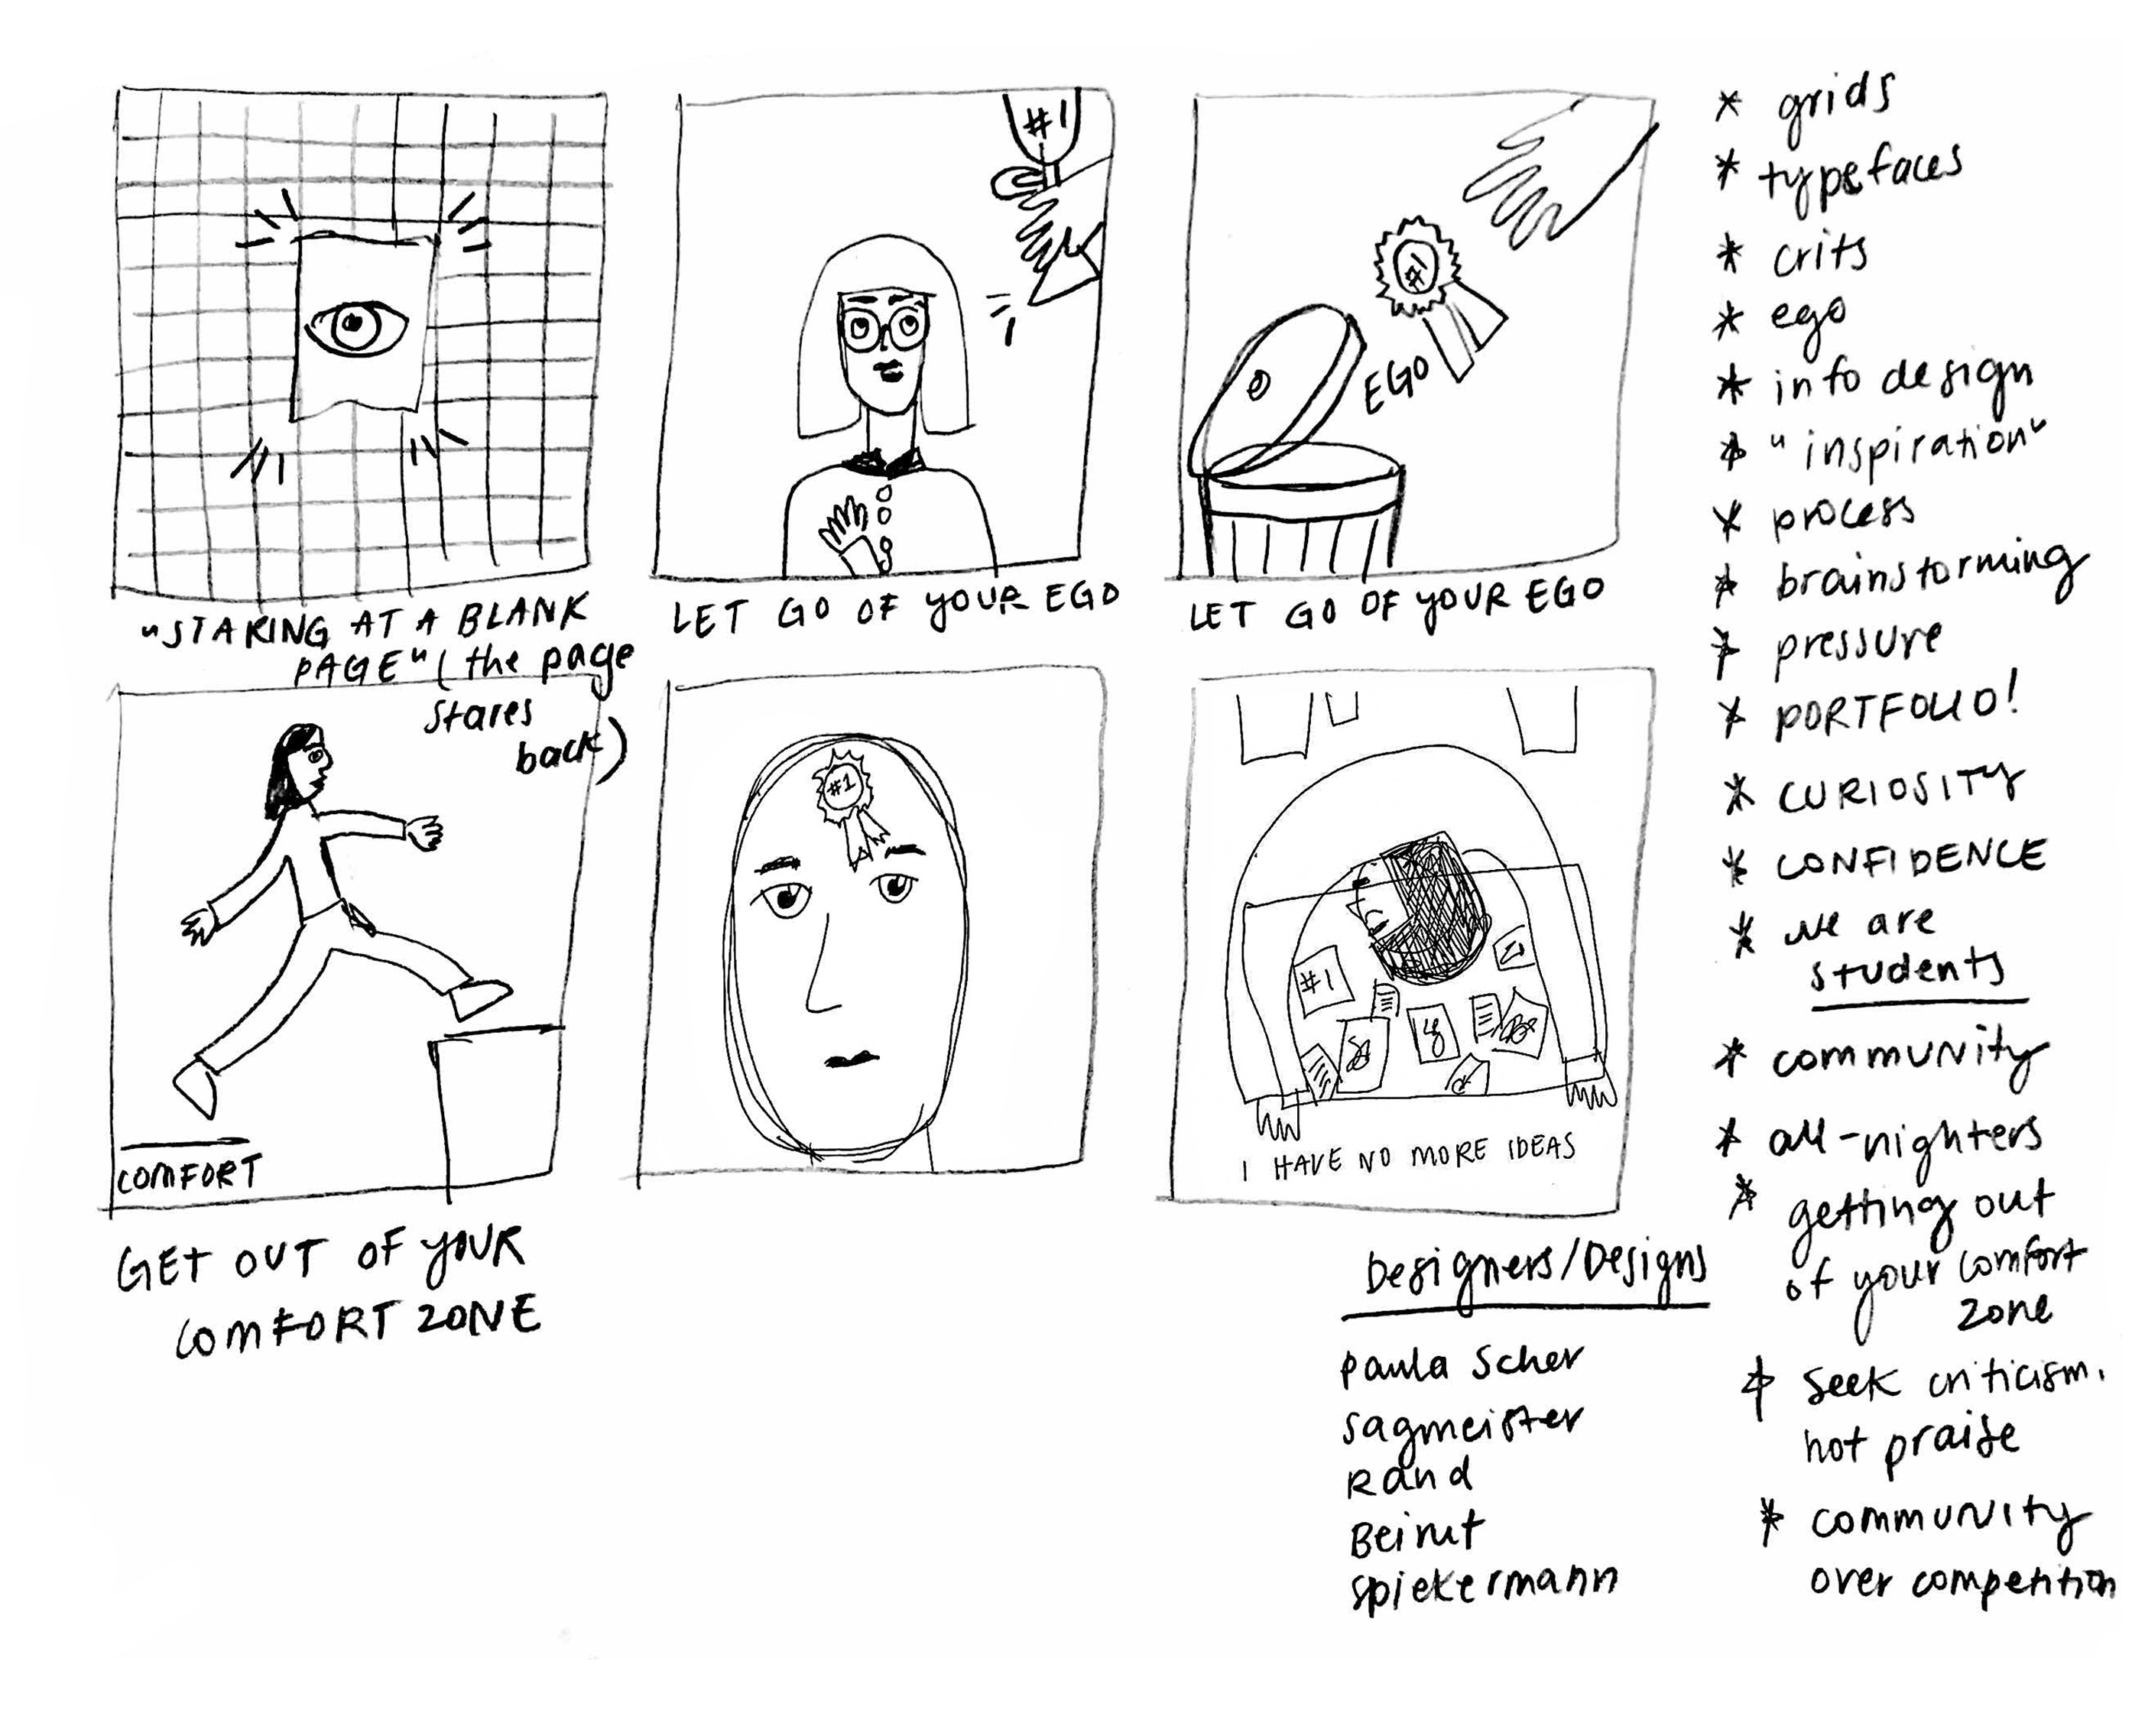 "STARING AT A BLANK
PAGE" (the page
stares
back)
#1
LET GO OF YOUR EGO
EGO
LET GO OF YOUR EGO
COMFORT
GET OUT OF YOUR
COMFORT ZONE
#1
#1
I HAVE NO MORE IDEAS
Designers/Designs
Paula Scher
Sagmeister
Rand
Beirut
Spiekermann
* grids
* typefaces
* crits
* ego
* info design
* "inspiration"
* process
* brainstorming
* pressure
* PORTFOLIO!
* CURIOSITY
* CONFIDENCE
* we are
students
* community
* all-nighters
* getting out
of your comfort
zone
* seek criticism,
not praise
* community
over competition